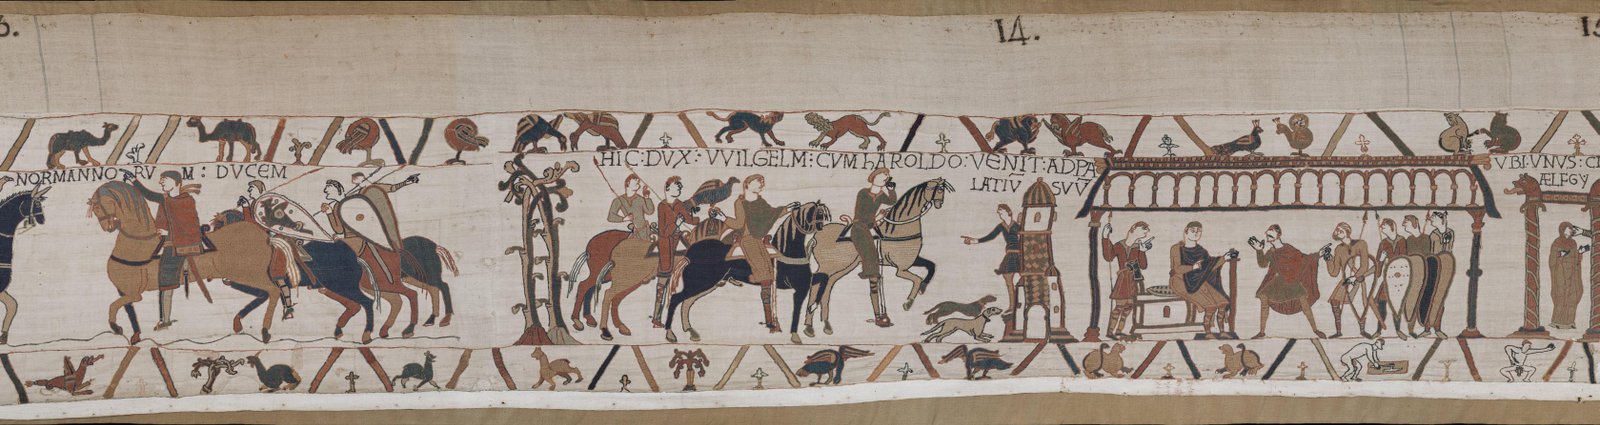 3.
14.
15
NORMANNORVM : DVCEM
HIC : DVX : VVILGELM : CVM hAROLDO : VENIT : AD PA
LATIV̄ SVV̄
VBI : VNUS : CL
ÆLFGY